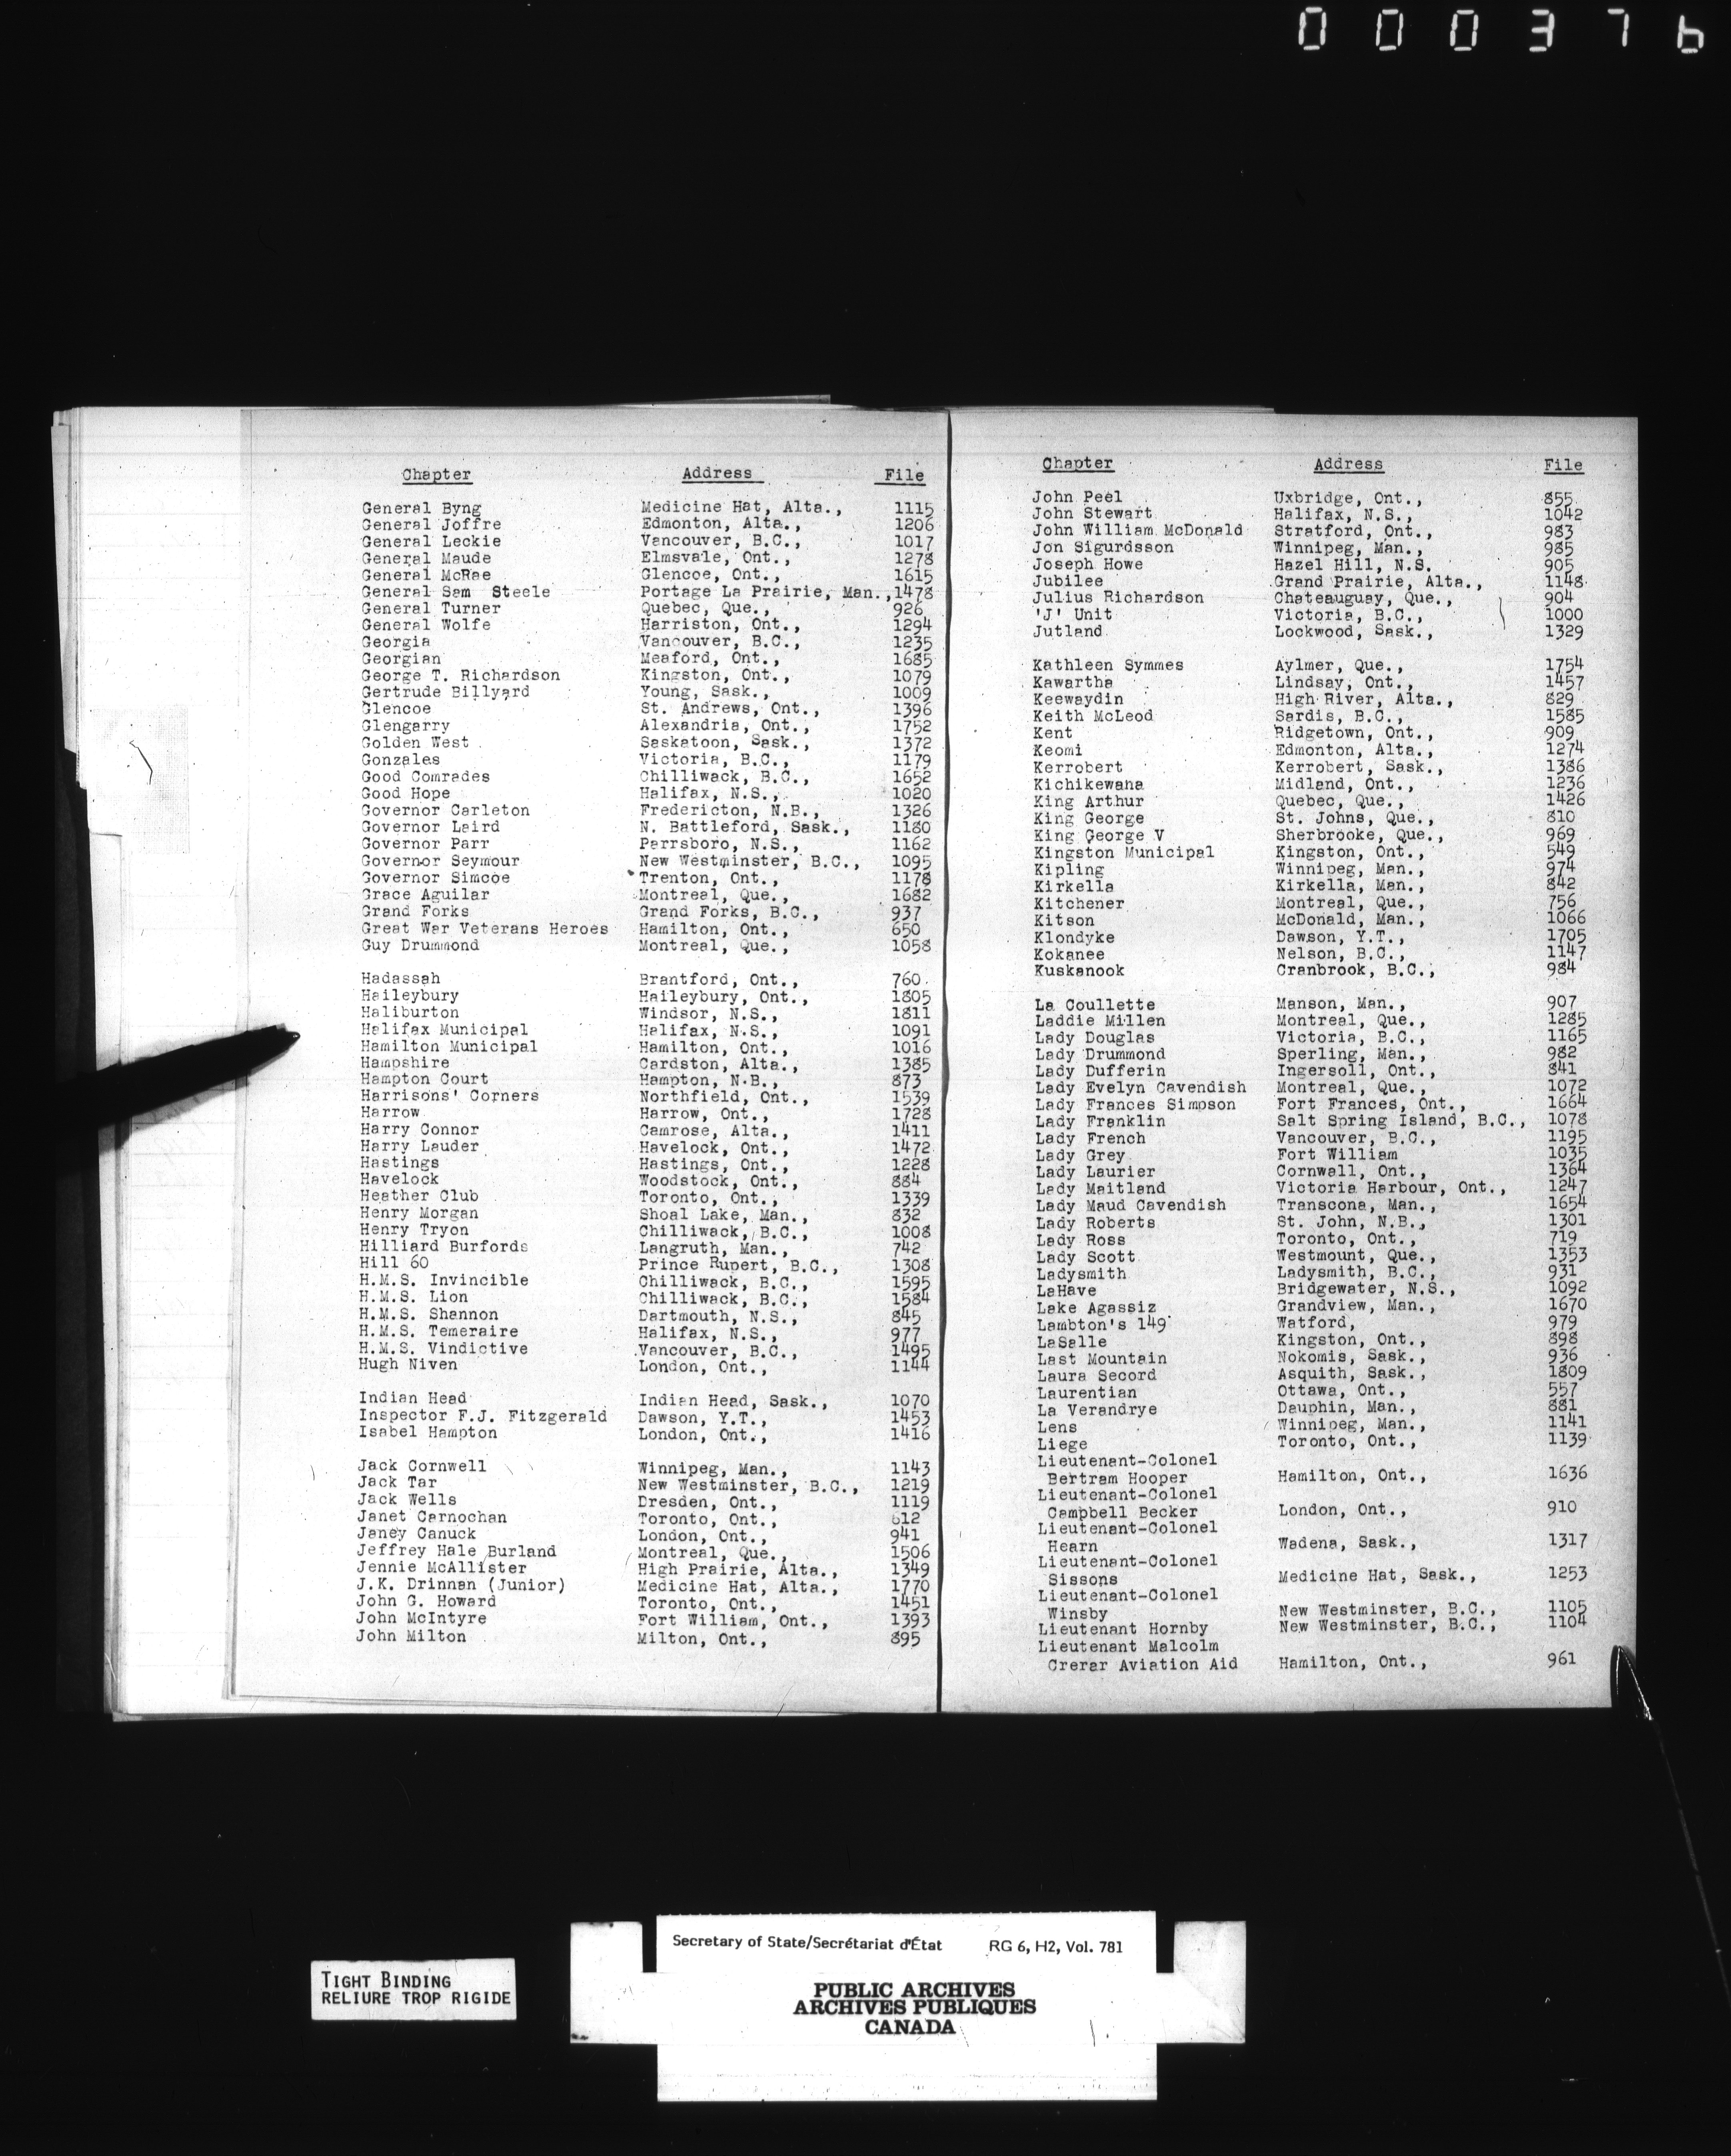 000376
Chapter Address File
General Byng Medicine Hat, Alta., 1115
General Joffre Edmonton, Alta., 1206
General Leckie Vancouver, B.C., 1017
General Maude Elmsvale, Ont., 1278
General McRae Glencoe, Ont., 1615
General Sam Steele Portage La Prairie, Man., 1478
General Turner Quebec, Que., 926
General Wolfe Harriston, Ont., 1294
Georgia Vancouver, B.C., 1235
Georgian Meaford, Ont., 1685
George T. Richardson Kingston, Ont., 1079
Gertrude Billyard Young, Sask., 1009
Glencoe St. Andrews, Ont., 1396
Glengarry Alexandria, Ont., 1752
Golden West Saskatoon, Sask., 1372
Gonzales Victoria, B.C., 1179
Good Comrades Chilliwack, B.C., 1652
Good Hope Halifax, N.S., 1020
Governor Carleton Fredericton, N.B., 1326
Governor Laird N. Battleford, Sask., 1180
Governor Parr Parrsboro, N.S., 1162
Governor Seymour New Westminster, B.C., 1095
Governor Simcoe Trenton, Ont., 1178
Grace Aguilar Montreal, Que., 1682
Grand Forks Grand Forks, B.C., 937
Great War Veterans Heroes Hamilton, Ont., 650
Guy Drummond Montreal, Que., 1058
Hadassah Brantford, Ont., 760
Haileybury Haileybury, Ont., 1805
Haliburton Windsor, N.S., 1811
Halifax Municipal Halifax, N.S., 1091
Hamilton Municipal Hamilton, Ont., 1016
Hampshire Cardston, Alta., 1385
Hampton Court Hampton, N.B., 873
Harrisons' Corners Northfield, Ont., 1539
Harrow Harrow, Ont., 1728
Harry Connor Camrose, Alta., 1411
Harry Lauder Havelock, Ont., 1472
Hastings Hastings, Ont., 1228
Havelock Woodstock, Ont., 884
Heather Club Toronto, Ont., 1339
Henry Morgan Shoal Lake, Man., 832
Henry Tryon Chilliwack, B.C., 1008
Hilliard Burfords Langruth, Man., 742
Hill 60 Prince Rupert, B.C., 1308
H.M.S. Invincible Chilliwack, B.C., 1595
H.M.S. Lion Chilliwack, B.C., 1584
H.M.S. Shannon Dartmouth, N.S., 845
H.M.S. Temeraire Halifax, N.S., 977
H.M.S. Vindictive Vancouver, B.C., 1495
Hugh Niven London, Ont., 1144
Indian Head Indian Head, Sask., 1070
Inspector F.J. Fitzgerald Dawson, Y.T., 1453
Isabel Hampton London, Ont., 1416
Jack Cornwell Winnipeg, Man., 1143
Jack Tar New Westminster, B.C., 1219
Jack Wells Dresden, Ont., 1119
Janet Carnochan Toronto, Ont., 612
Janey Canuck London, Ont., 941
Jeffrey Hale Burland Montreal, Que., 1506
Jennie McAllister High Prairie, Alta., 1349
J.K. Drinnan (Junior) Medicine Hat, Alta., 1770
John G. Howard Toronto, Ont., 1451
John McIntyre Fort William, Ont., 1393
John Milton Milton, Ont., 895
Chapter Address File
John Peel Uxbridge, Ont., 855
John Stewart Halifax, N.S., 1042
John William McDonald Stratford, Ont., 983
Jon Sigurdsson Winnipeg, Man., 985
Joseph Howe Hazel Hill, N.S. 905
Jubilee Grand Prairie, Alta., 1148
Julius Richardson Chateauguay, Que., 904
'J' Unit Victoria, B.C., 1000
Jutland Lockwood, Sask., 1329
Kathleen Symmes Aylmer, Que., 1754
Kawartha Lindsay, Ont., 1457
Keewaydin High River, Alta., 829
Keith McLeod Sardis, B.C., 1585
Kent Ridgetown, Ont., 909
Keomi Edmonton, Alta., 1274
Kerrobert Kerrobert, Sask., 1386
Kichikewana Midland, Ont., 1236
King Arthur Quebec, Que., 1426
King George St. Johns, Que., 810
King George V Sherbrooke, Que., 969
Kingston Municipal Kingston, Ont., 549
Kipling Winnipeg, Man., 974
Kirkella Kirkella, Man., 842
Kitchener Montreal, Que., 756
Kitson McDonald, Man., 1066
Klondyke Dawson, Y.T., 1705
Kokanee Nelson, B.C., 1147
Kuskanook Cranbrook, B.C., 984
La Coullette Manson, Man., 907
Laddie Millen Montreal, Que., 1285
Lady Douglas Victoria, B.C., 1165
Lady Drummond Sperling, Man., 982
Lady Dufferin Ingersoll, Ont., 841
Lady Evelyn Cavendish Montreal, Que., 1072
Lady Frances Simpson Fort Frances, Ont., 1664
Lady Franklin Salt Spring Island, B.C., 1078
Lady French Vancouver, B.C., 1195
Lady Grey Fort William 1035
Lady Laurier Cornwall, Ont., 1364
Lady Maitland Victoria Harbour, Ont., 1247
Lady Maud Cavendish Transcona, Man., 1654
Lady Roberts St. John, N.B., 1301
Lady Ross Toronto, Ont., 719
Lady Scott Westmount, Que., 1353
Ladysmith Ladysmith, B.C., 931
LaHave Bridgewater, N.S., 1092
Lake Agassiz Grandview, Man., 1670
Lambton's 149 Watford, 979
LaSalle Kingston, Ont., 898
Last Mountain Nokomis, Sask., 936
Laura Secord Asquith, Sask., 1809
Laurentian Ottawa, Ont., 557
La Verandrye Dauphin, Man., 881
Lens Winnipeg, Man., 1141
Liege Toronto, Ont., 1139
Lieutenant-Colonel
Bertram Hooper Hamilton, Ont., 1636
Lieutenant-Colonel
Campbell Becker London, Ont., 910
Lieutenant-Colonel
Hearn Wadena, Sask., 1317
Lieutenant-Colonel
Sissons Medicine Hat, Sask., 1253
Lieutenant-Colonel
Winsby New Westminster, B.C., 1105
Lieutenant Hornby New Westminster, B.C., 1104
Lieutenant Malcolm
Crerar Aviation Aid Hamilton, Ont., 961
TIGHT BINDING
RELIURE TROP RIGIDE
Secretary of State/Secrétariat d'État RG 6, H2, Vol. 781
PUBLIC ARCHIVES
ARCHIVES PUBLIQUES
CANADA